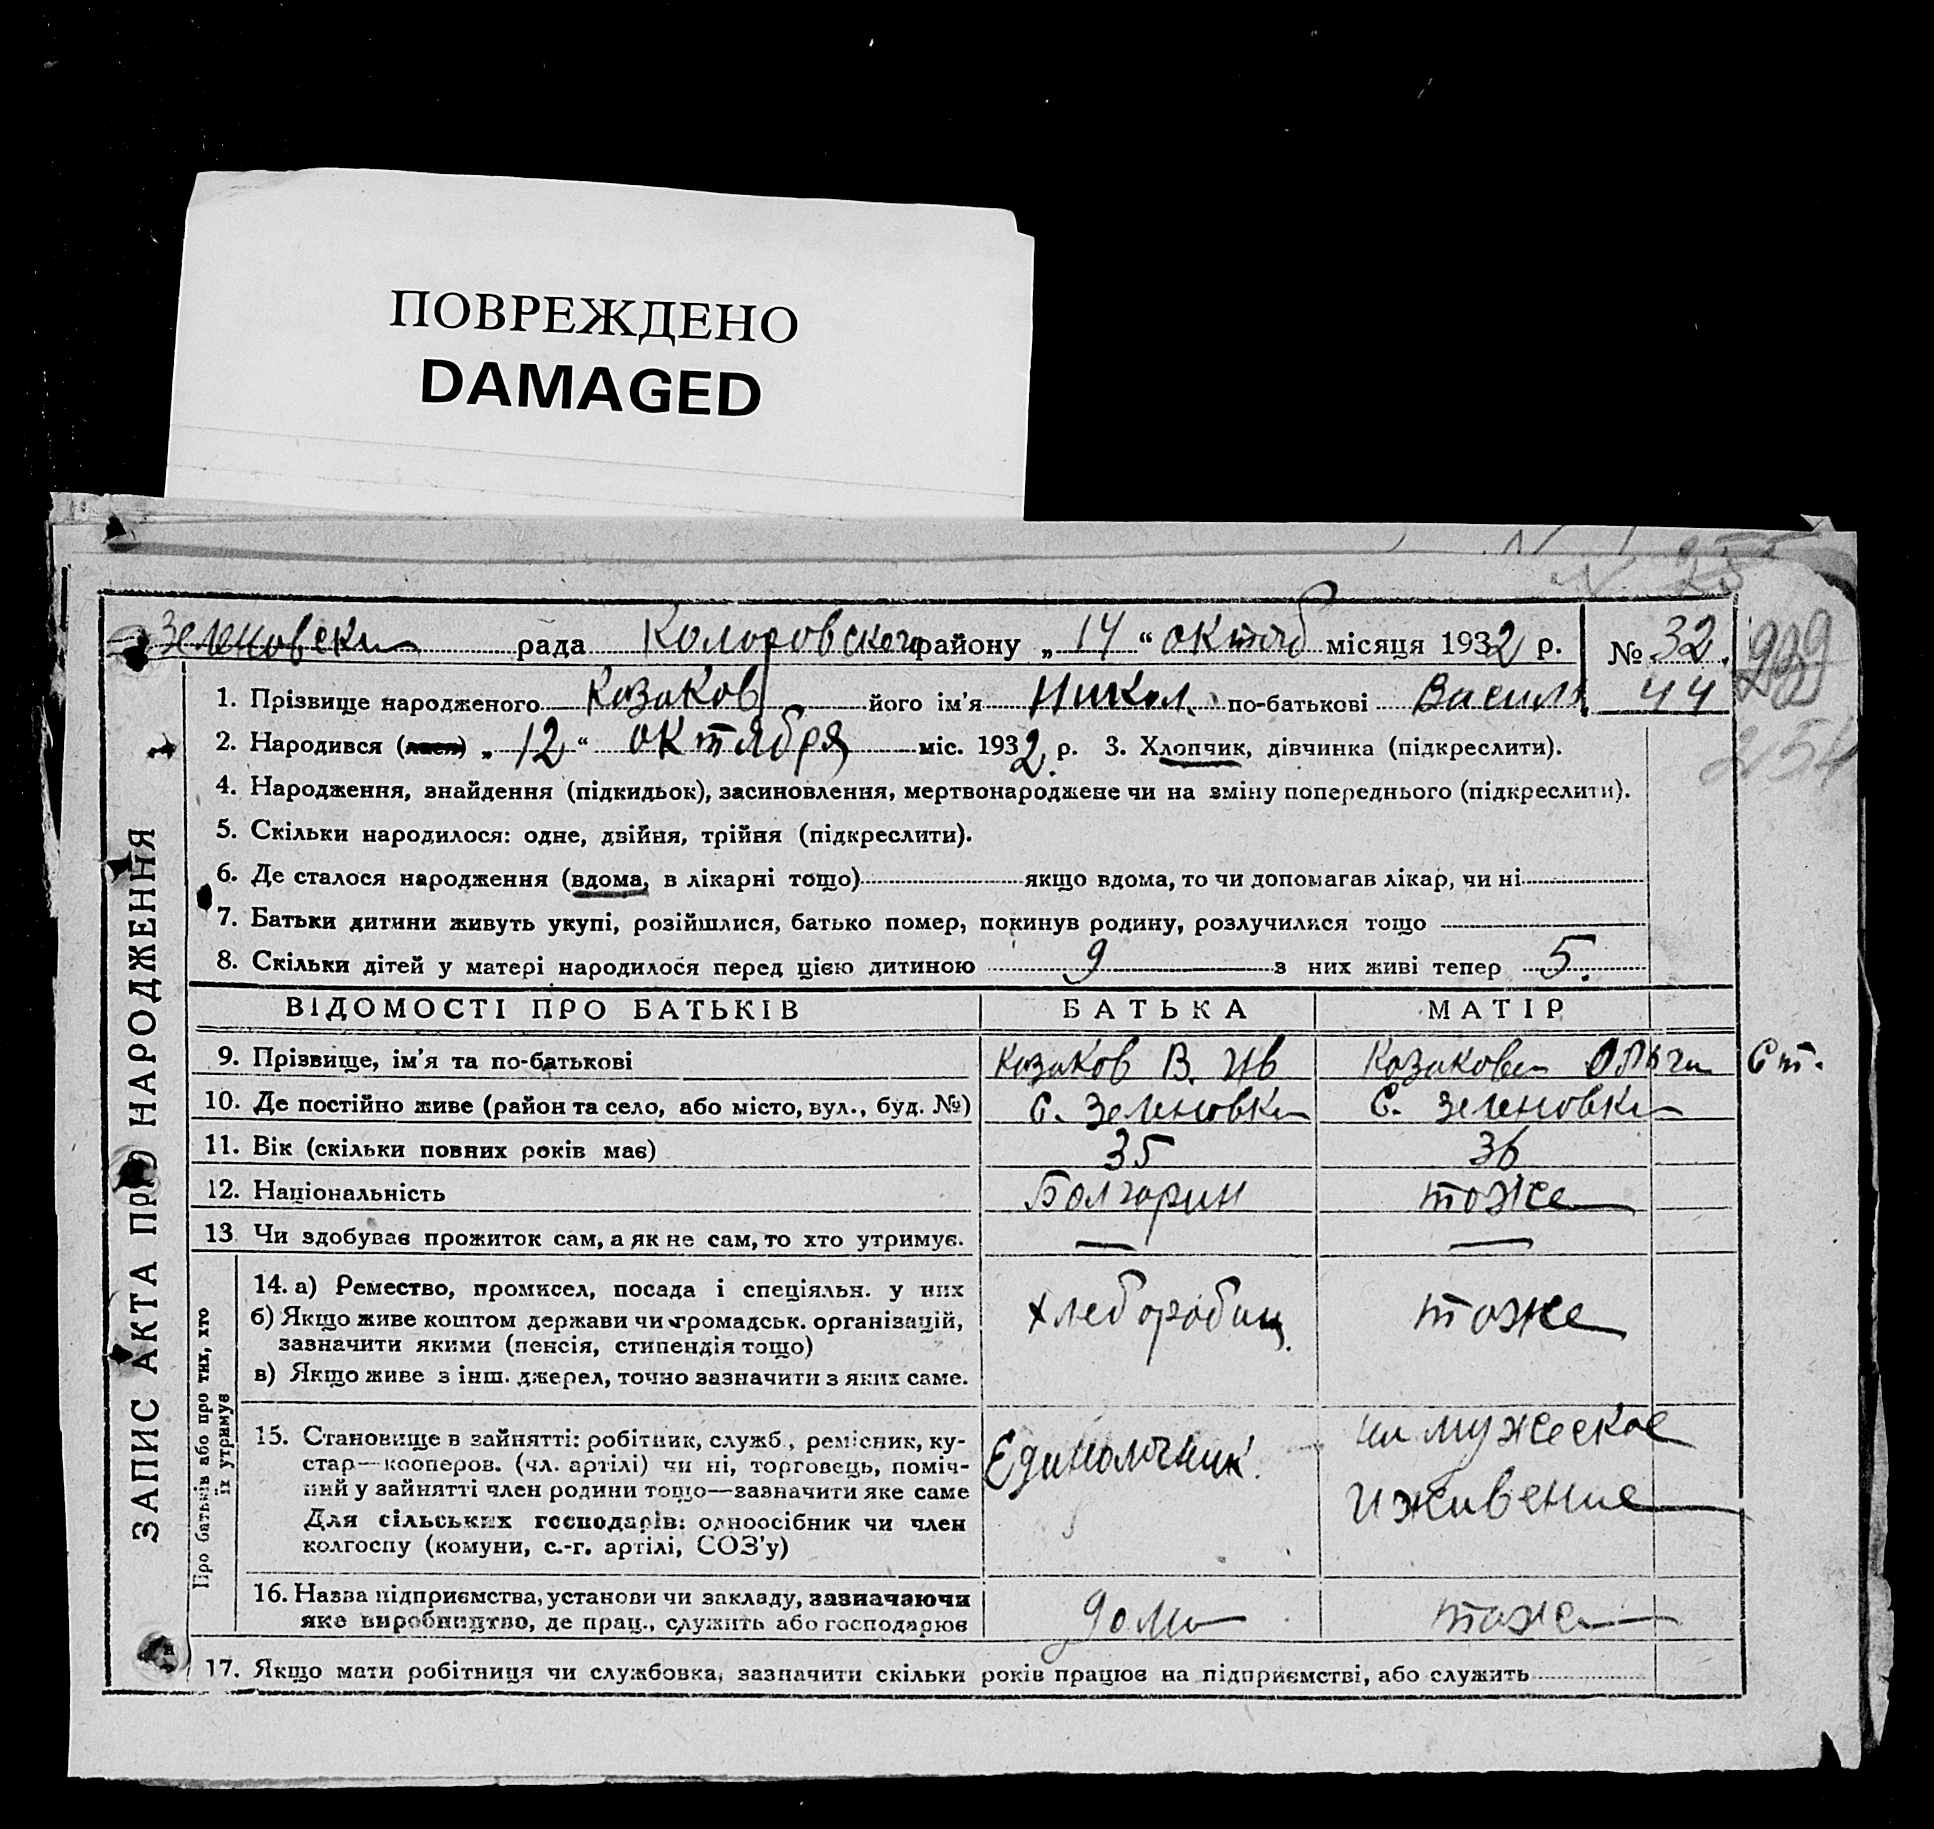 ПОВРЕЖДЕНО
DAMAGED
Зеленовска рада Коларовского району „14“ октяб місяця 1932 р. № 32
44
1. Прізвище народженого Казаков його ім'я Никол. по-батькові Васил
2. Народився (лася) „12“ октября міс. 1932 р. 3. Хлопчик, дівчинка (підкреслити).
254
4. Народження, знайдення (підкидьок), засиновлення, мертвонароджене чи на зміну попереднього (підкреслити).
5. Скільки народилося: одне, двійня, трійня (підкреслити).
6. Де сталося народження (вдома, в лікарні тощо) якщо вдома, то чи допомагав лікар, чи ні
7. Батьки дитини живуть укупі, розійшлися, батько помер, покинув родину, розлучилися тощо
8. Скільки дітей у матері народилося перед цією дитиною 9 з них живі тепер 5.
ЗАПИС АКТА ПРО НАРОДЖЕННЯ
ВІДОМОСТІ ПРО БАТЬКІВ БАТЬКА МАТІР
9. Прізвище, ім'я та по-батькові Казаков В. Ив Казакова Ольга Ст.
10. Де постійно живе (район та село, або місто, вул., буд. №) С. Зеленовка С. Зеленовка
11. Вік (скільки повних років має) 35 36
12. Національність Болгарин тоже
13 Чи здобував прожиток сам, а як не сам, то хто утримує. — —
Про батьків або про тих, хто
їх утримує
14. а) Ремество, промисел, посада і спеціяльн. у них хлебороб тоже
б) Якщо живе коштом держави чи громадськ. організацій,
зазначити якими (пенсія, стипендія тощо)
в) Якщо живе з інш. джерел, точно зазначити з яких саме.
15. Становище в зайнятті: робітник, служб., ремісник, ку-
стар—кооперов. (чл. артілі) чи ні, торговець, поміч-
ний у зайнятті член родини тощо—зазначити яке саме
Для сільських господарів: одноосібник чи член
колгоспу (комуни, с.-г. артілі, СОЗ'у)
Единоличник
на мужеское
иживение
16. Назва підприємства, установи чи закладу, зазначаючи
яке виробництво, де прац., служить або господарює дома тоже
17. Якщо мати робітниця чи службовка, зазначити скільки років працює на підприємстві, або служить